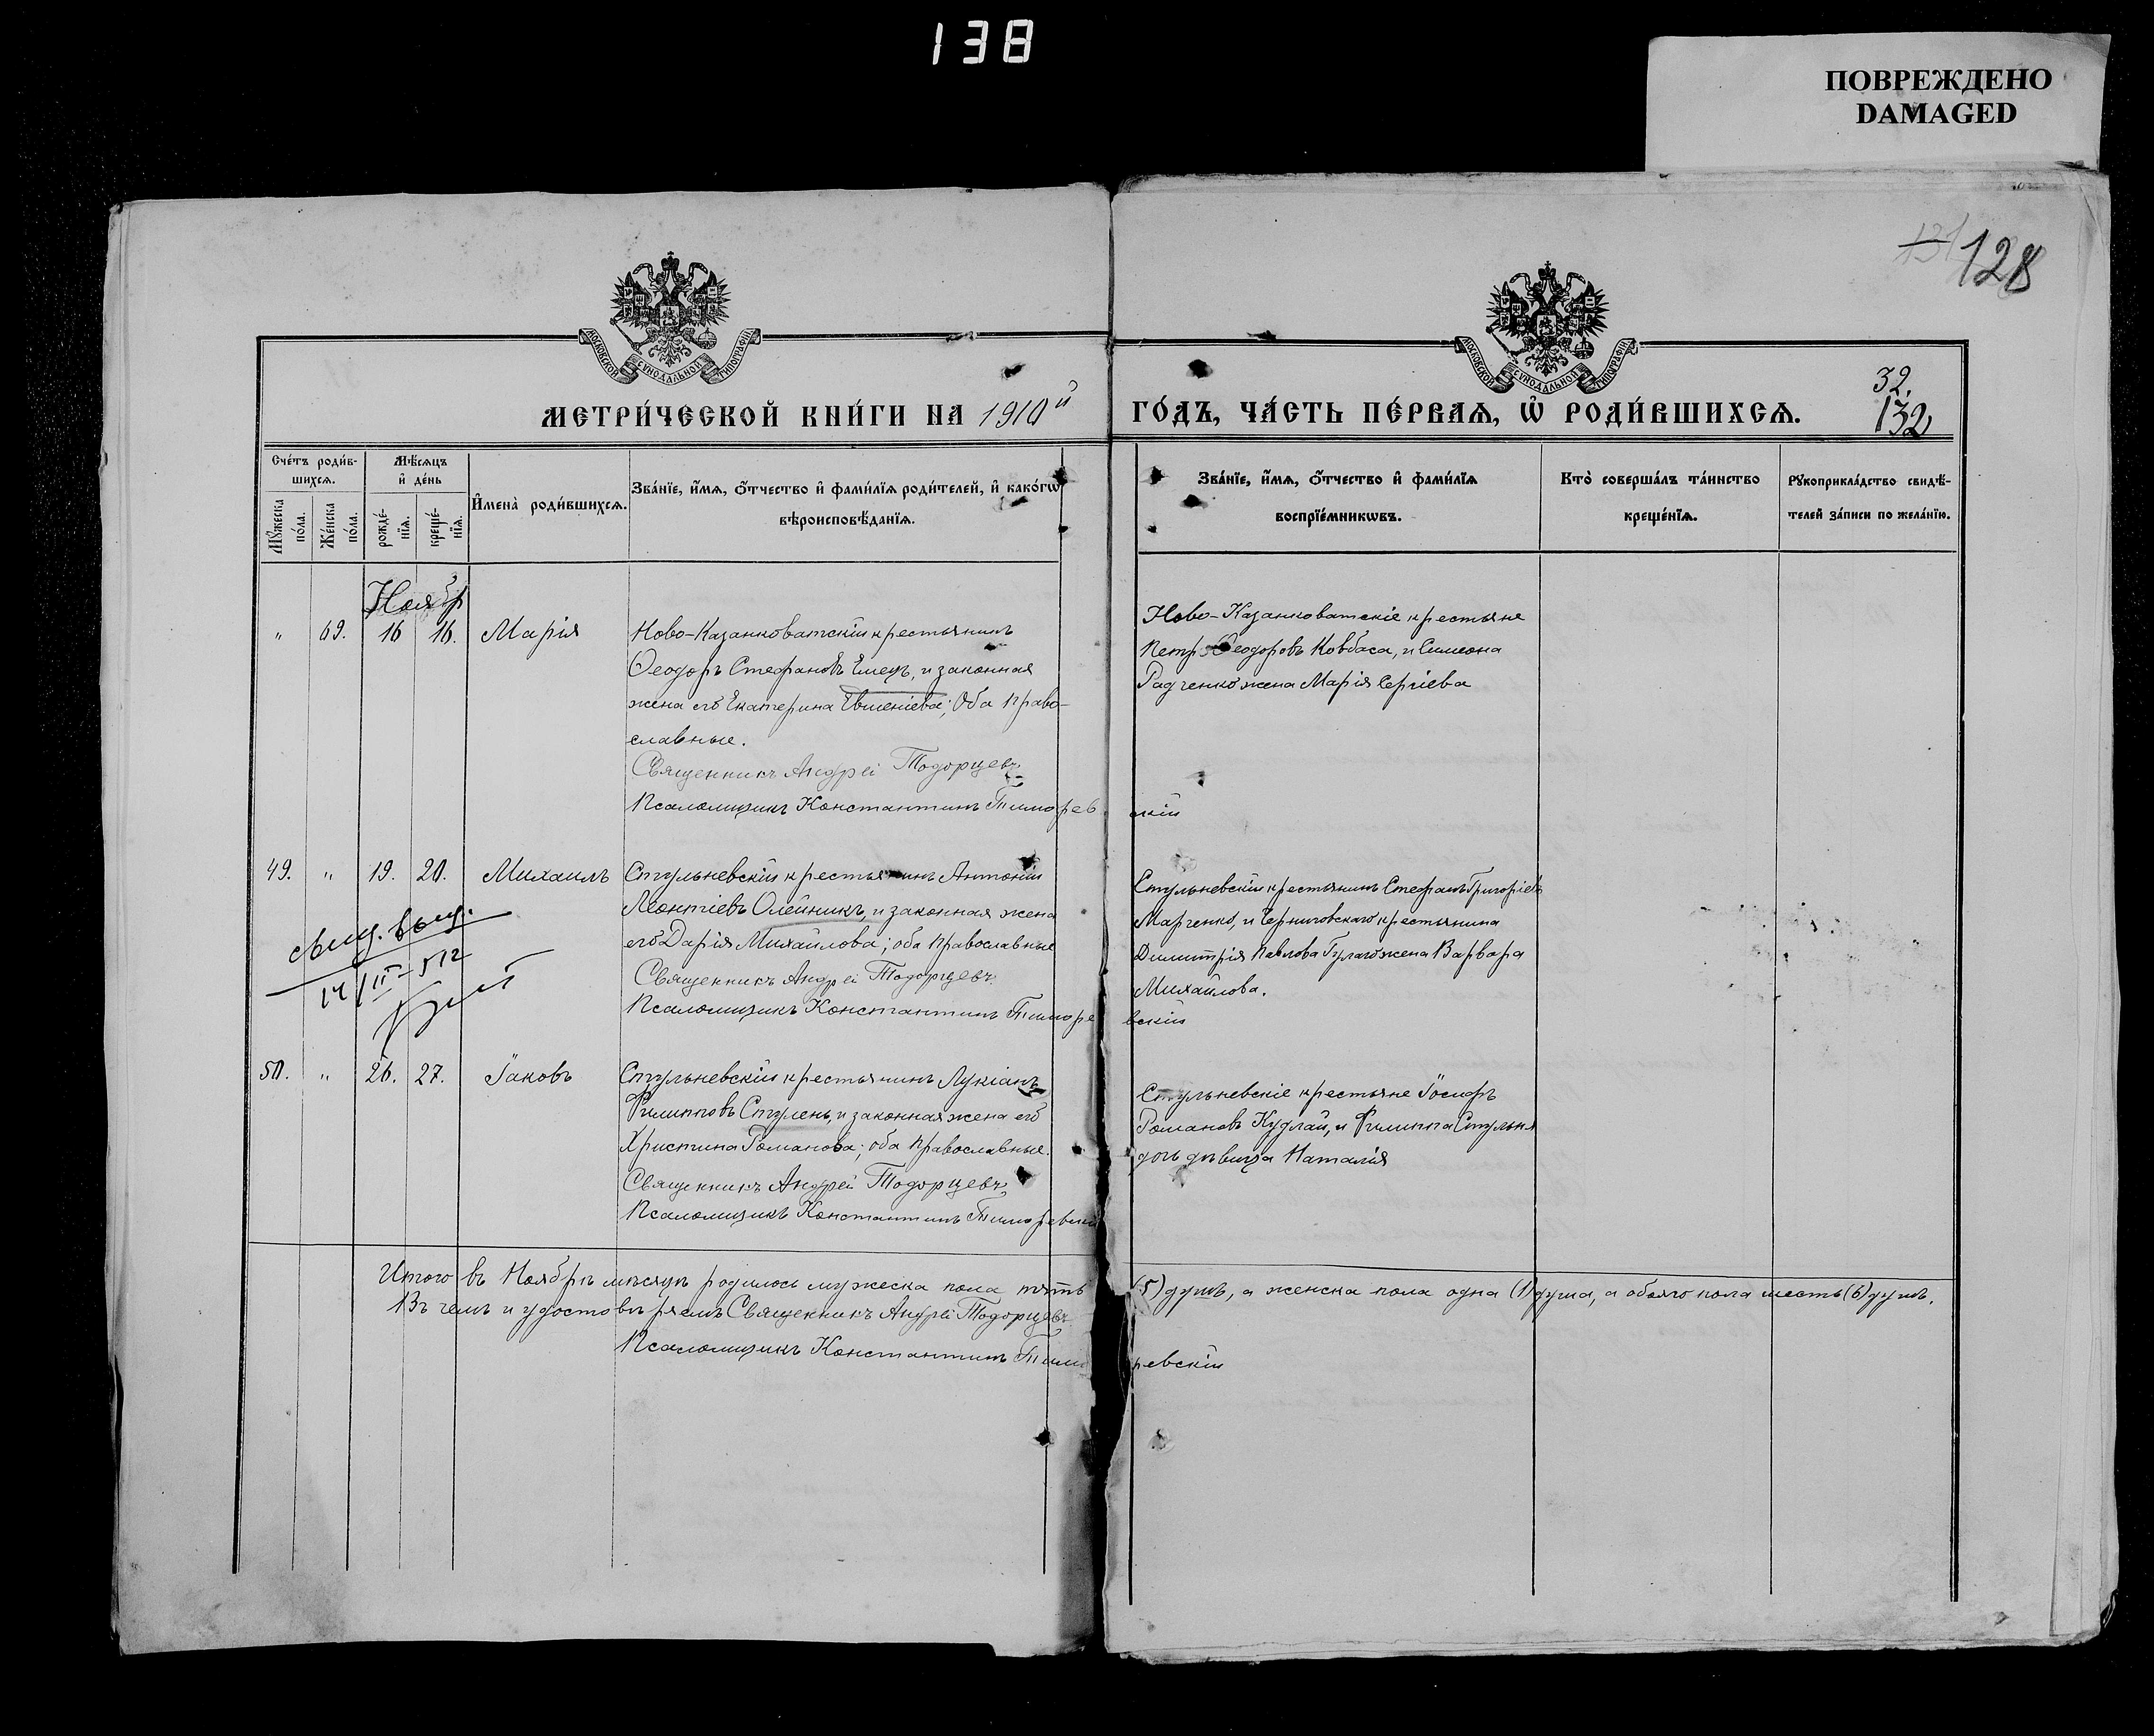 138
ПОВРЕЖДЕНО
DAMAGED
131 128
МОСКОВСКОЙ СѴНОДАЛЬНОЙ ТИПОГРАФІИ
МОСКОВСКОЙ СѴНОДАЛЬНОЙ ТИПОГРАФІИ
32.
132
МЕТРИ́ЧЕСКОЙ КНИ́ГИ НА 1910й
ГО́ДЪ, ЧА́СТЬ ПЕ́РВАЯ, Ѡ҆ РОДИ́ВШИХСѦ.
Сче́тъ роди́в-
шихсѧ.
Мꙋ́жеска по́ла.
Же́нска по́ла.
Мѣ́сѧцъ
и҆ де́нь
рожде́нїѧ.
креще́нїѧ.
И҆мена̀ роди́вшихсѧ.
Зва́нїе, и҆́мѧ, ѻ҆́тчество и҆ фами́лїѧ роди́телей, и҆ како́гѡ
вѣроисповѣ́данїѧ.
Зва́нїе, и҆́мѧ, ѻ҆́тчество и҆ фами́лїѧ
воспрїе́мникѡвъ.
Кто̀ соверша́лъ та́инство
креще́нїѧ.
Рꙋкоприкла́дство свидѣ́-
телей за́писи по жела́нїю.
Ноябр
" 69. 16 16. Марія
Ново-Казанковатскій крестьянинъ
Ѳеодоръ Стефановъ Емецъ, и законная
жена его Екатерина Евменіева; Оба право-
славные.
Священникъ Андрей Тодорцевъ
Псаломщикъ Константинъ Тиморев
скій
Ново-Казанковатскіе крестьяне
Петръ Ѳеодоровъ Ковбаса, и Симеона
Радченко жена Марія Сергіева
49. " 19. 20. Михаилъ
Стульневскій крестьянинъ Антоній
Леонтіевъ Олейникъ, и законная жена
его Дарія Михайлова; оба православные
Священникъ Андрей Тодорцевъ
Псаломщикъ Константинъ Тиморе
вскій
Стульневскій крестьянинъ Стефанъ Григоріевъ
Марченко, и Черниговскаго крестьянина
Димитрія Павлова жена Варвара
Михайлова.
выд.
50. " 26. 27. Іаковъ
Стульневскій крестьянинъ Лукіанъ
Филипповъ Стулень, и законная жена его
Христина Романова; оба православные.
Священникъ Андрей Тодорцевъ
Псаломщикъ Константинъ Тиморевскій
Стульневскіе крестьяне Іосифъ
Романовъ Кудлай, и Филиппа Стульня
дочь дѣвица Наталія
Итого въ Ноябрѣ мѣсяцѣ родилось мужеска пола пять (5) душъ, а женска пола одна (1) душа, а обоего пола шесть (6) душъ.
Въ чемъ и удостовѣряемъ Священникъ Андрей Тодорцевъ
Псаломщикъ Константинъ Тимо
ревскій